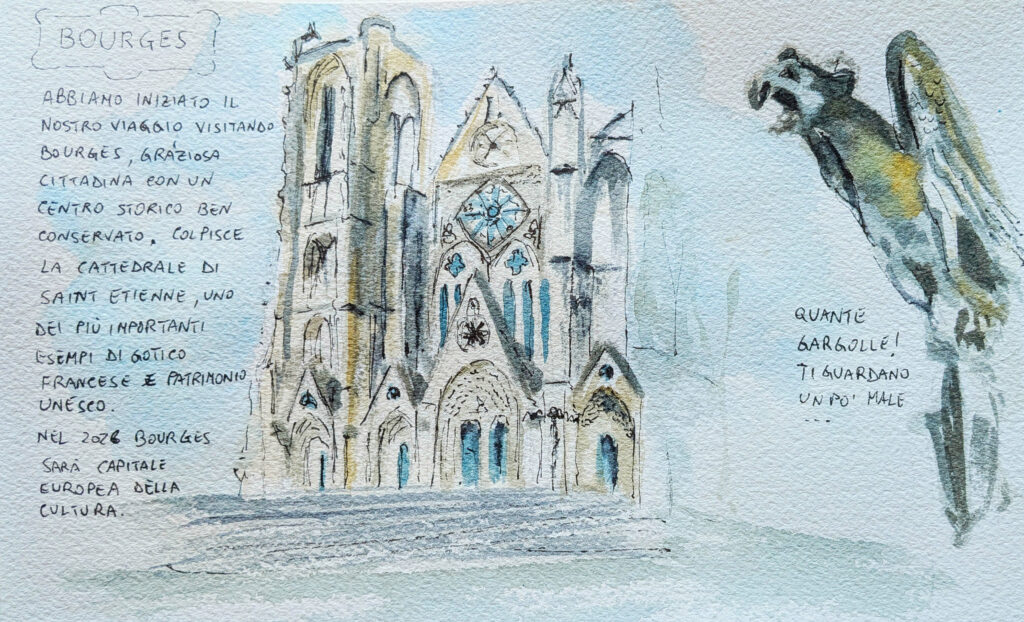 BOURGES
ABBIAMO INIZIATO IL
NOSTRO VIAGGIO VISITANDO
BOURGES, GRAZIOSA
CITTADINA CON UN
CENTRO STORICO BEN
CONSERVATO. COLPISCE
LA CATTEDRALE DI
SAINT ETIENNE, UNO
DEI PIÙ IMPORTANTI
ESEMPI DI GOTICO
FRANCESE E PATRIMONIO
UNESCO.
NEL 2026 BOURGES
SARÀ CAPITALE
EUROPEA DELLA
CULTURA.
QUANTE
GARGOLLE!
TI GUARDANO
UN PO' MALE
...